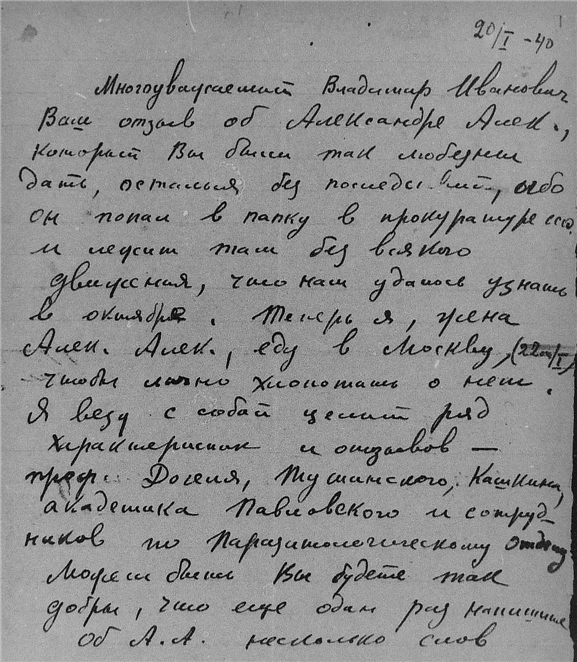 20/I - 40
Многоуважаемый Владимир Иванович
Ваш отзыв об Александре Алек.,
который Вы были так любезны
дать, остался без последствий, ибо
он попал в папку в прокуратуре ссср
и лежит там без всякого
движения, что нам удалось узнать
в октябре. Теперь я, жена
Алек. Алек., еду в Москву, (22го/I)
чтобы лично хлопотать о нем.
Я везу с собой целый ряд
характеристик и отзывов —
проф. Догеля, Тушинского, Кашкина,
академика Павловского и сотруд-
ников по Паразитологическому отделу
Может быть Вы будете так
добры, что еще один раз напишите
об А.А. несколько слов